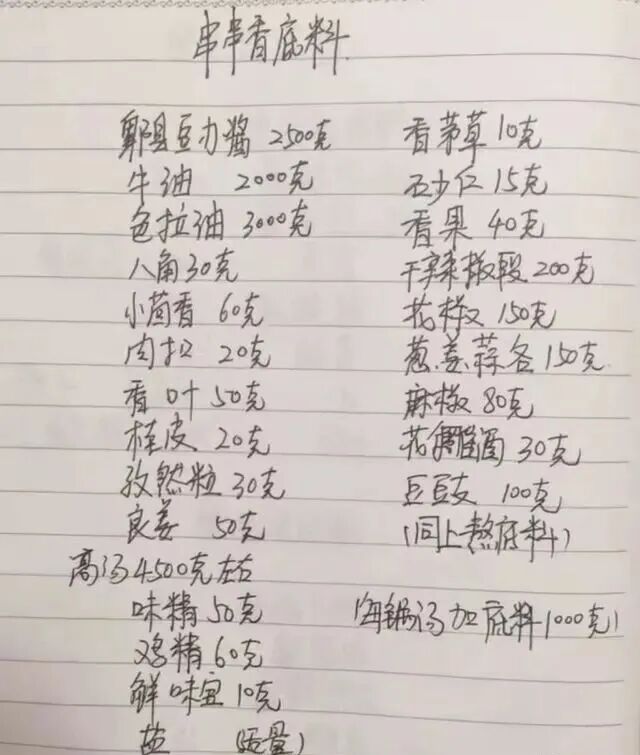 串串香底料
郫县豆力酱 2500克
牛油 2000克
色拉油 3000克
八角30克
小茴香 60克
肉扣 20克
香叶50克
桂皮20克
孜然粒30克
良姜 50克
高汤4500克左右
味精50克
鸡精60克
鲜味宝10克
盐 (适量)
香茅草10克
砂仁15克
香果 40克
干辣椒段200克
花椒 150克
葱.姜.蒜各150克
麻椒80克
花雕酒30克
豆豉 100克
(同上熬底料)
(每锅汤加底料1000克)